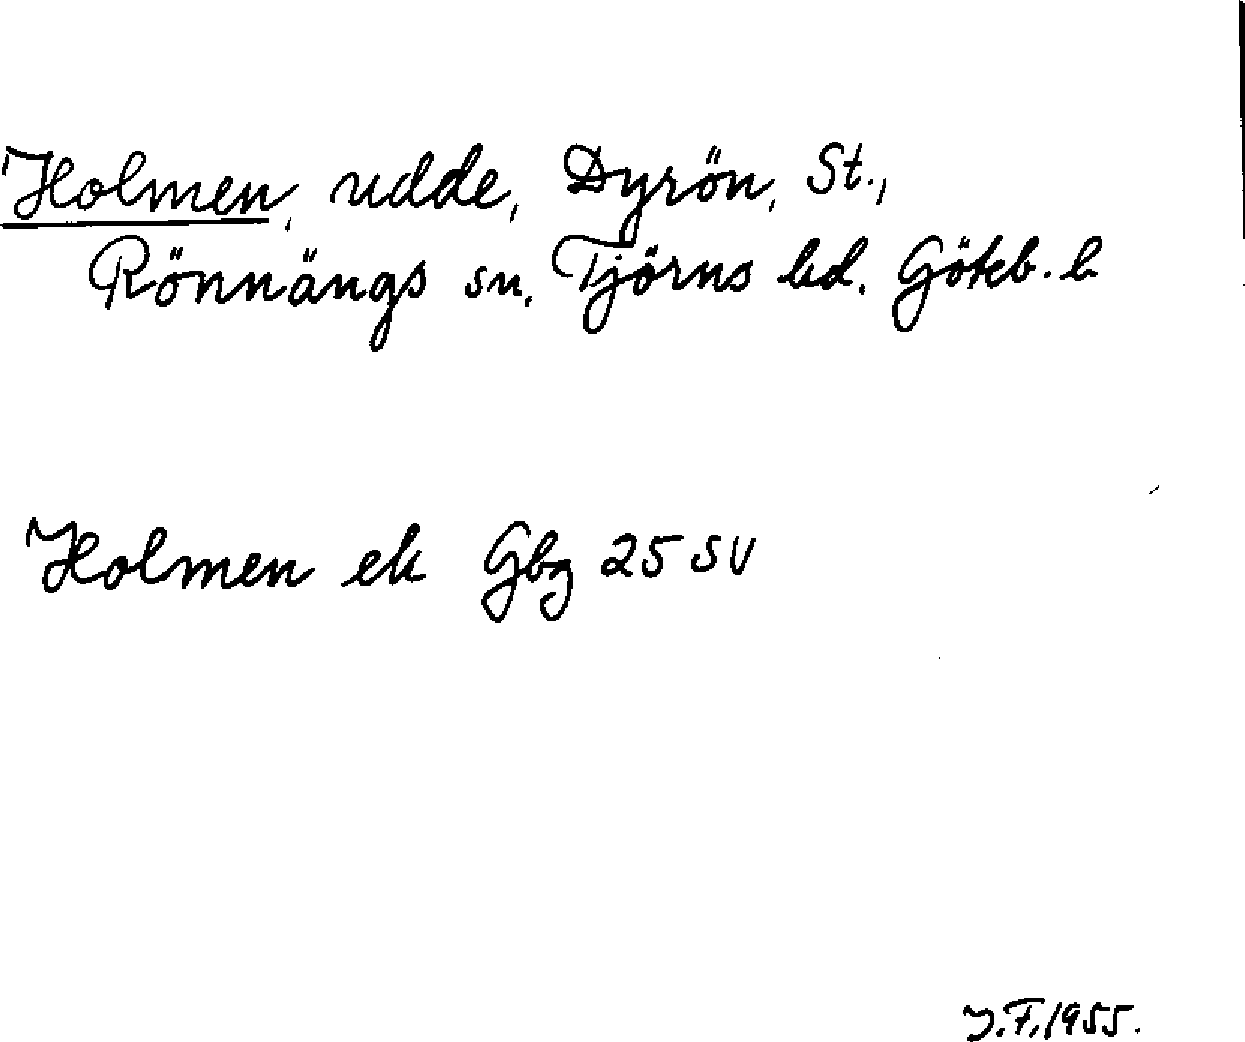 Holmen, udde, Dyrön, St.,
Rönnängs sn, Tjörns hd. Göteb. l
Holmen ek Gbg 25 SV
J.F. 1955.